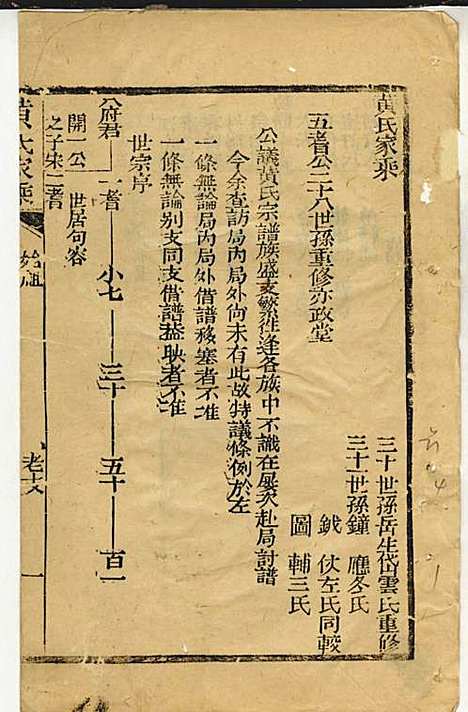 黄氏家乘
三十世孫岳生岱雲氏重修
三十一世孫鐘 應冬氏
鉞 伏左氏同較
圖 輔三氏
五耆公二十八世孫重修亦政堂
公議黃氏宗譜族盛支繁從逢各族中不識在屡次赴局討譜
今余查訪局內局外尚未有此故特議條例於左
一條無論局內局外借譜移塞者不准
一條無論别支同支借譜挜映者不准
世宗序
府君 一耆 小七 三十 五十 百一
開一公 世居句容
之子朱二耆
黄氏家乘
始祖
一